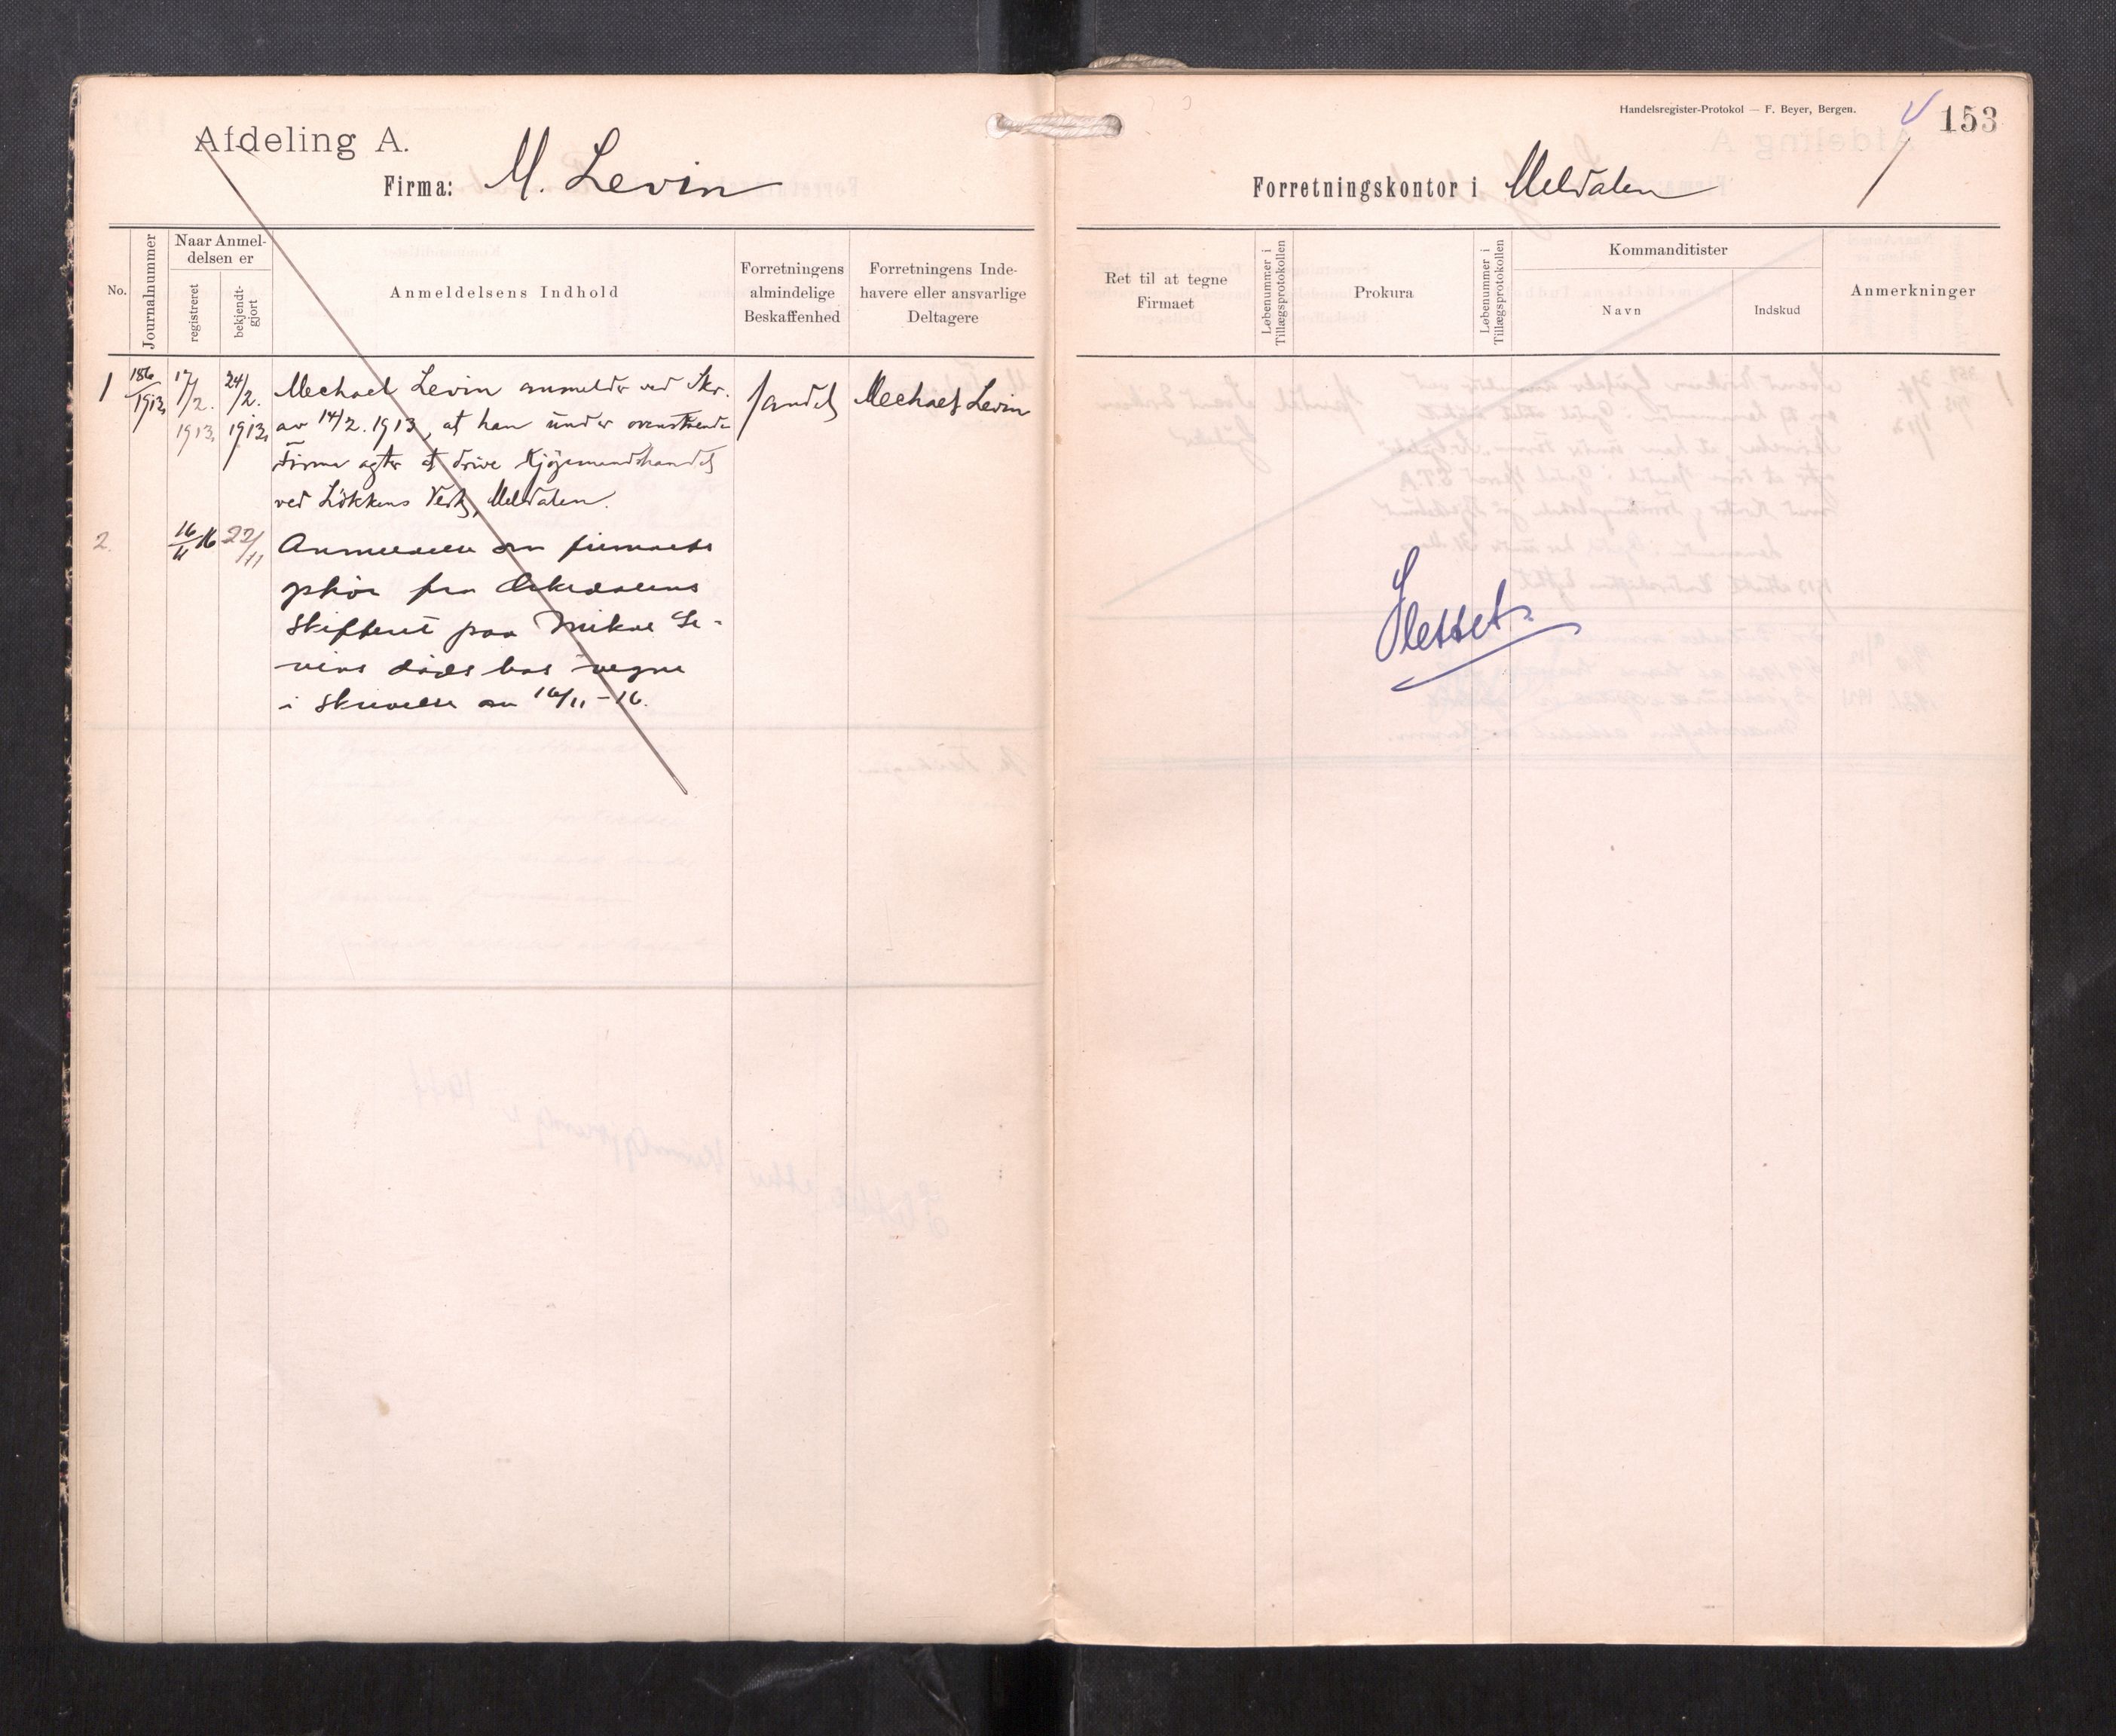 Afdeling A.
Firma: M. Levin
No.
Journalnummer
Naar Anmel-
delsen er
registreret
bekjendt-
gjort
Anmeldelsens Indhold
Forretningens
almindelige
Beskaffenhed
Forretningens Inde-
havere eller ansvarlige
Deltagere
1
186
1913
17/2.
1913.
24/2.
1913.
Mechael Levin anmelder ved Skr.
av 14/2. 1913, at han under ovenstaaende
Firma agter at drive Kjöpmandshandel
ved Lökkens Verk, Meldalen.
Handel
Mechael Levin
2.
16/11 16
22/11
Anmeldelse om firmaets
ophör fra Orkedalens
Skifteret paa Mikal Le-
vins döds bos vegne
i skrivelse av 16/11-16.
Handelsregister-Protokol — F. Beyer, Bergen.
153
Forretningskontor i Meldalen
Ret til at tegne
Firmaet
Løbenummer i
Tillægsprotokollen
Prokura
Løbenummer i
Tillægsprotokollen
Kommanditister
Navn
Indskud
Anmerkninger
Slettet